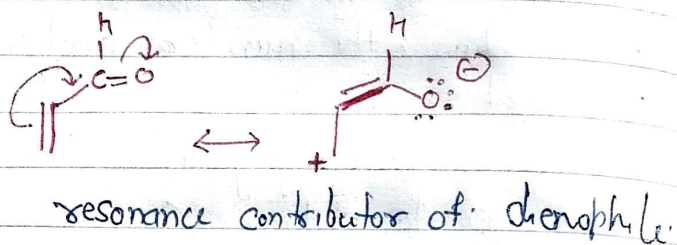 H
C=O
H
O:
⊖
+
resonance contributor of dienophile.